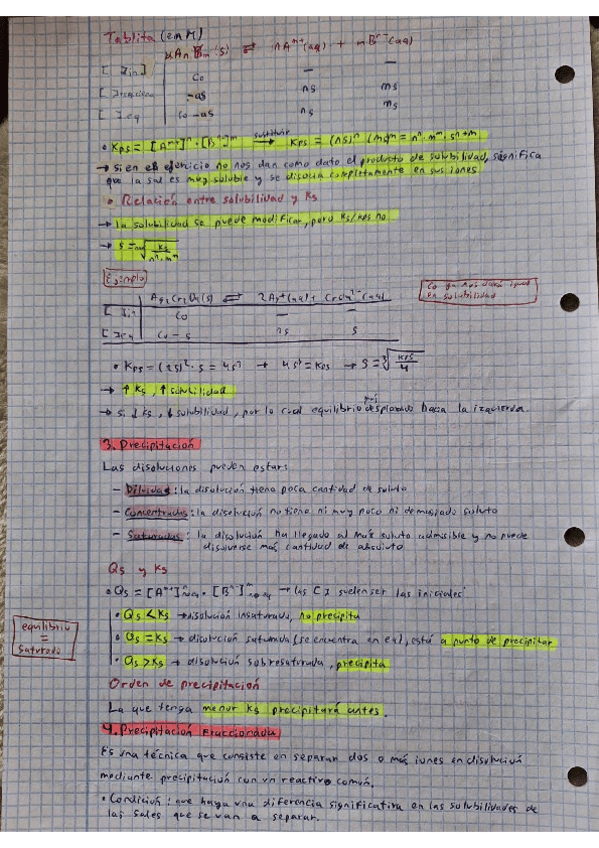 Tablita (en M)
μAnBm(s) ⇌ nAᵐ⁺(aq) + mBⁿ⁻(aq)
[ ]in | Co — —
[ ]reacciona | -as ns ms
[ ]eq | Co-as ns ms
• Kps = [Aᵐ⁺]ⁿ · [Bⁿ⁻]ᵐ sustituir → Kps = (ns)ⁿ (ms)ᵐ = nⁿ · mᵐ · sⁿ⁺ᵐ
→ si en el ejercicio no nos dan como dato el producto de solubilidad, significa
que la sal es muy soluble y se disocia completamente en sus iones
• Relación entre solubilidad y Ks
→ la solubilidad se puede modificar, pero Ks/Kps no
→ s = ⁿ⁺ᵐ√(Ks / nⁿ·mᵐ)
Ejemplo
Ag2CrO4(s) ⇌ 2Ag⁺(aq) + CrO4²⁻(aq)
Co ya nos dará igual
en solubilidad
[ ]in | Co — —
[ ]eq | Co - s ns s
• Kps = (2s)² · s = 4s³ → 4s³ = Kps → s = ³√(Kps / 4)
→ ↑ Ks, ↑ solubilidad
→ si ↓ Ks, ↓ solubilidad, por lo cual equilibrio desplazado hacia la izquierda.
3. Precipitación
Las disoluciones pueden estar:
— Diluidas: la disolución tiene poca cantidad de soluto
— Concentradas: la disolución no tiene ni muy poco ni demasiado soluto
— Saturadas: la disolución ha llegado al máx soluto admisible y no puede
disolverse más cantidad de
Qs y Ks
• Qs = [Aᵐ⁺]ⁿno eq · [Bⁿ⁻]ᵐno eq → las [ ] suelen ser las iniciales
• Qs < Ks → disolución insaturada, no precipita
equilibrio
=
saturado
• Qs = Ks → disolución saturada (se encuentra en eq), está a punto de precipitar
• Qs > Ks → disolución sobresaturada, precipita
Orden de precipitación
La que tenga menor Ks precipitará antes.
4. Precipitación fraccionada
Es una técnica que consiste en separar dos o más iones en disolución
mediante precipitación con un reactivo común.
• Condición: que haya una diferencia significativa en las solubilidades de
las sales que se van a separar.